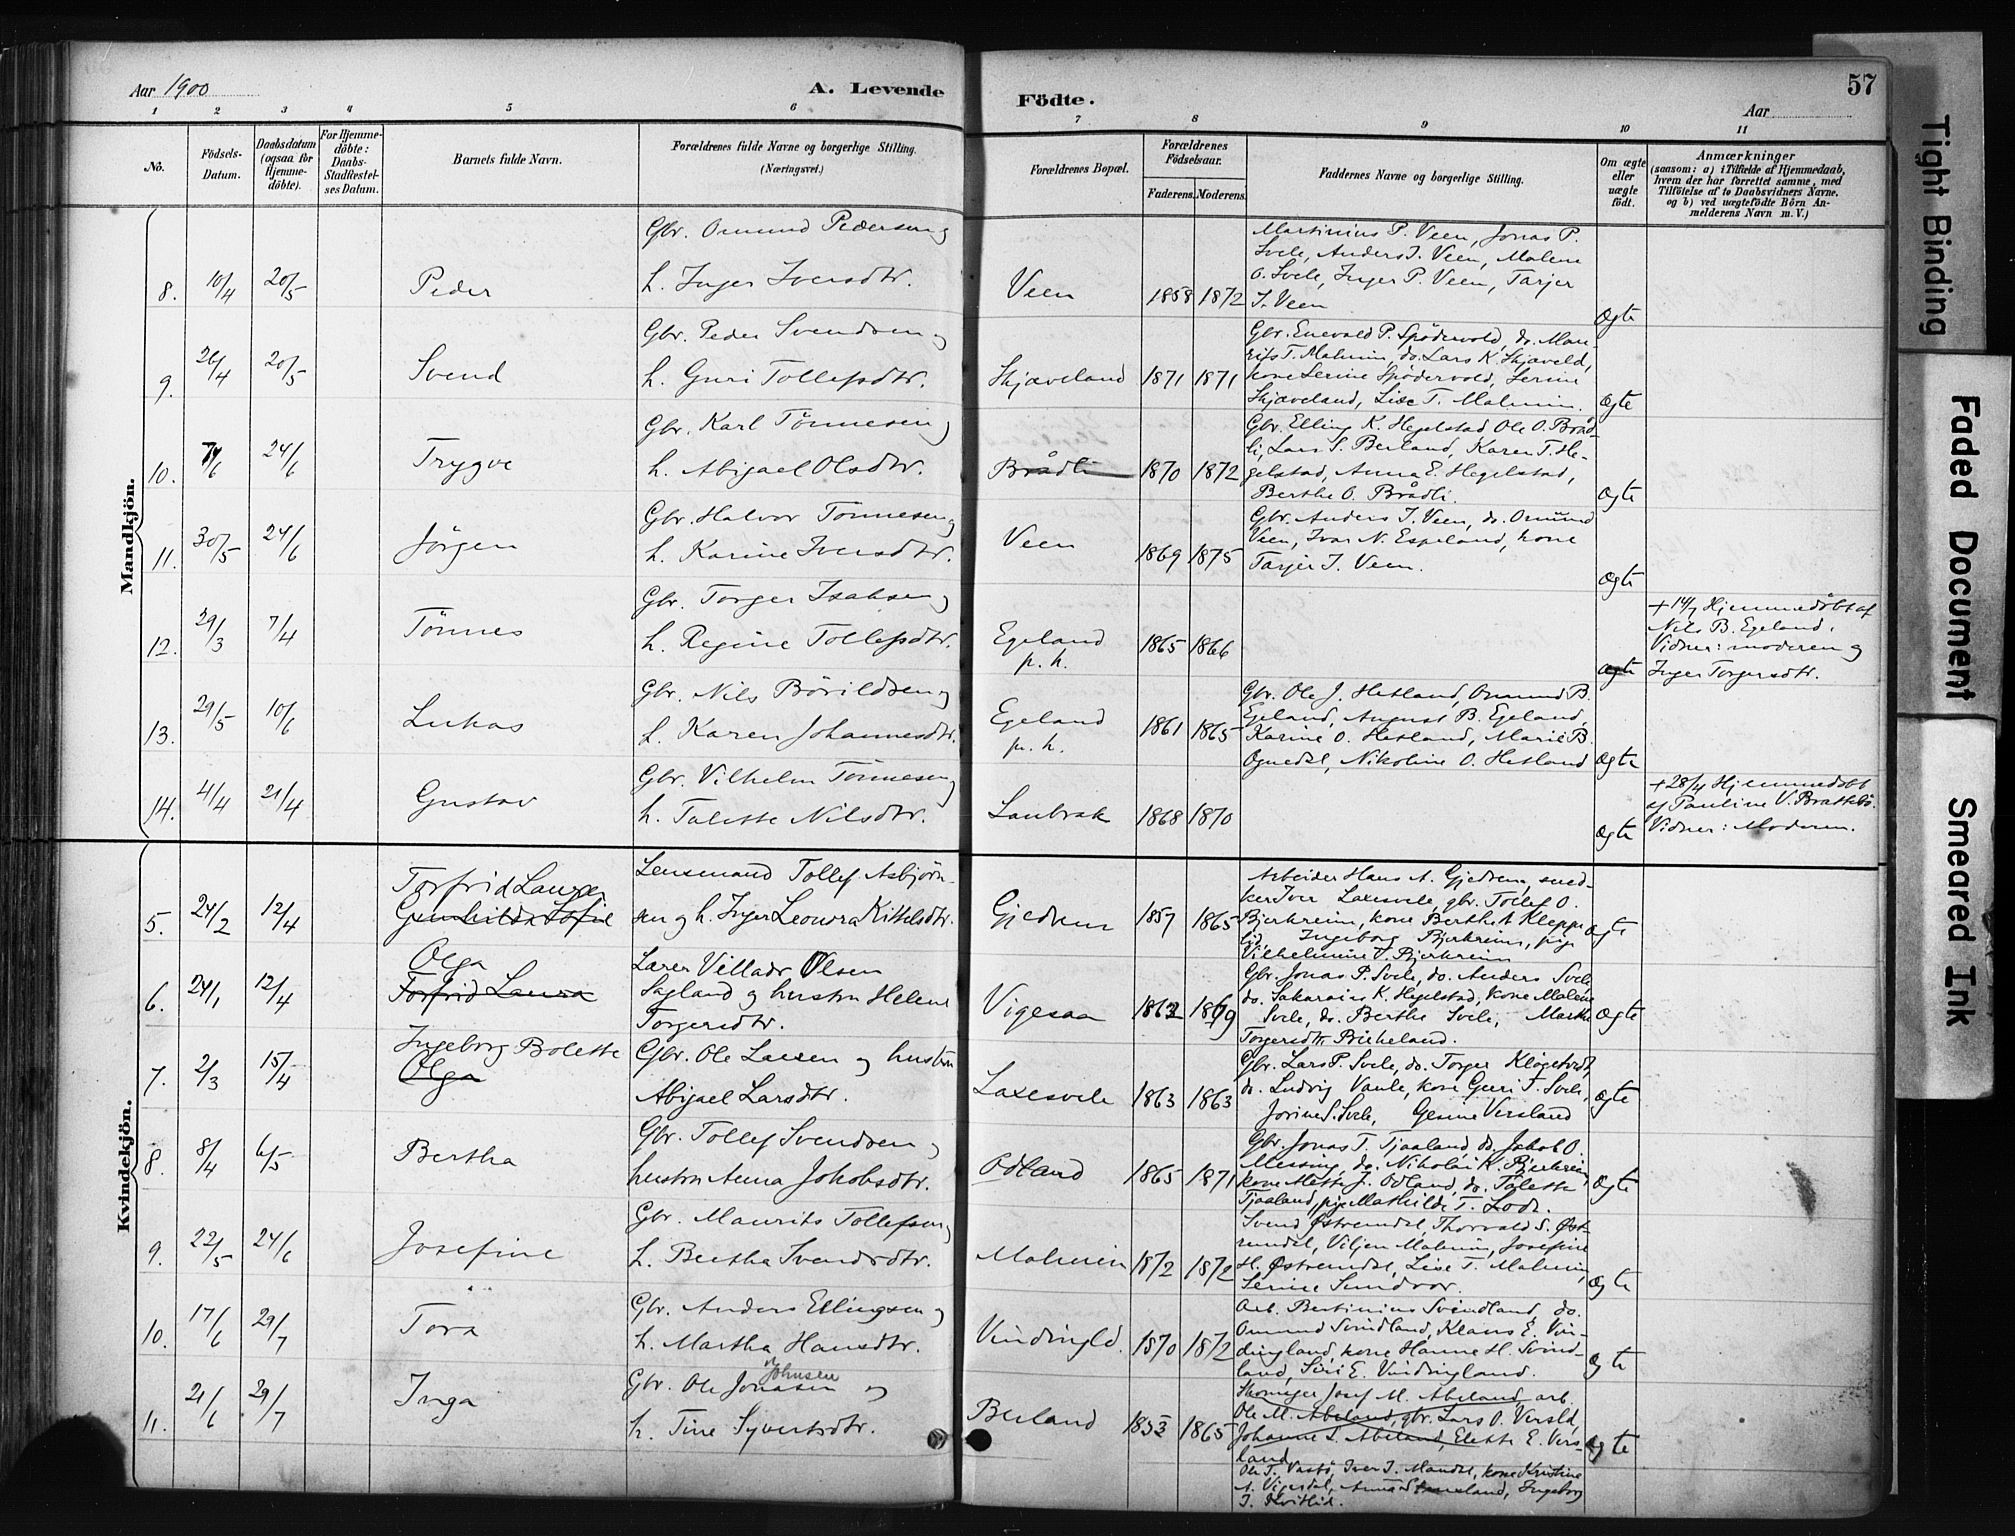 Aar 1900
A. Levende
Födte.
Aar
57
1 2 3 4 5 6 7 8 9 10 11
No.
Födsels-Datum.
Daabsdatum (ogsaa for Hjemmedöbte).
For Hjemmedöbte: Daabs-Stadfæstelses Datum.
Barnets fulde Navn.
Forældrenes fulde Navne og borgerlige Stilling.
(Næringsvei.)
Forældrenes Bopæl.
Forældrenes Födselsaar.
Faderens. Moderens.
Faddernes Navne og borgerlige Stilling.
Om ægte eller uægte födt.
Anmærkninger
(saasom: a) i Tilfælde af Hjemmedaab, hvem der har forrettet samme, med Tilföielse af to Daabsvidners Navne. og b) ved uægtefödte Börn Anmelderens Navn m. V.)
Mandkjön.
8. 10/4 20/5 Peder
Gbr. Omund Pedersen og
h. Inger Iversdtr.
Veen 1858 1872
Martinius P. Veen, Jonas P.
Svele, Anders I. Veen, Malene
O. Svele, Inger P. Veen, Tarjer
I. Veen
Ægte
9. 26/4 20/5 Svend
Gbr. Peder Svendsen og
h. Guri Tollefsdtr.
Skjæveland 1871 1871
Gbr. Enevald P. Spödervold, do. Mau-
rits T. Malmin, do. Lars K. Skjæveld,
kone Serine Spödervold, Serine
Skjæveland, Lise T. Malmin.
Ægte
10. 7/6 24/6 Trygve
Gbr. Karl Tönnesen og
h. Abigael Olsdtr.
Brådli 1870 1872
Gbr. Elling K. Hegelstad Ole O. Bråd-
li, Lars S. Berland, Karen T. He-
gelstad, Anna E. Hegelstad,
Berthe O. Brådli.
Ægte
11. 30/5 24/6 Jörgen
Gbr. Halvor Tönnesen og
h. Karine Iversdtr.
Veen 1869 1875
Gbr. Anders I. Veen, do. Omund
Veen, Ivar N. Espeland, kone
Tarjer I. Veen.
Ægte
12. 29/3 7/4 Tönnes
Gbr. Torger Isaksen og
h. Regine Tollefsdtr.
Egeland
p. h. 1865 1866
Ægte
+ 14/7 Hjemmedöbt af
Nils B. Egeland.
Vidner: moderen og
Inger Torgersdtr.
13. 29/5 10/6 Lukas
Gbr. Nils Börildsen og
h. Karen Johannesdtr.
Egeland
p. h. 1861 1865
Gbr. Ole J. Hetland, Omund B.
Egeland, August B. Egeland,
Karine O. Hetland, Marie B.
Ognedal, Nikoline O. Hetland
Ægte
14. 4/4 21/4 Gustav
Gbr. Vilhelm Tönnesen og
h. Talette Nilsdtr.
Laubrak 1868 1870
Ægte
+ 28/4 Hjemmedöbt
af Pauline V. Brattebö.
Vidner: Moderen.
Kvindekjön.
5. 24/2 12/4
Torfrid Laura
Gunhilda Sofie
Lensmand Tollef Asbjörn-
sen og h. Inger Leonora Kittelsdtr.
Gjedrem 1857 1865
Arbeider Hans A. Gjedrem, sned-
ker Iver Laxesvele, gbr. Tollef O.
Bjerkreim, kone Berthe A. Kleppe-
lid, Ingeborg Bjerkreim, pige
Vilhelmine T. Bjerkreim
Ægte
6. 24/1 12/4
Olga
Torfrid Laura
Lærer Villads Olsen
Sagland og hustru Helene
Torgersdtr.
Vigesaa 1862 1869
Gbr. Jonas P. Svele, do. Anders Svele,
do. Sakarias K. Hegelstad, kone Malene
Svele, do. Berthe Svele, Marthe
Torgersdtr. Birkeland.
Ægte
7. 2/3 15/4
Ingeborg Bolette
Olga
Gbr. Ole Larsen og hustru
Abigael Larsdtr.
Laxesvele 1863 1863
Gbr. Lars P. Svele, do. Torger Klögetvedt,
do. Ludvig Vaule, kone Guri T. Svele,
Jorine S. Svele, Gesine Versland
Ægte
8. 8/4 6/5 Bertha
Gbr. Tollef Svendsen og
hustru Anna Jakobsdtr.
Odland 1865 1871
Gbr. Jonas T. Tjaaland, do. Jakob O.
Messing, do. Nikolai K. Bjerkreim,
kone Mette J. Odland, do. Talette
Tjaaland, pige Mathilde T. Lode.
Ægte
9. 22/5 24/6 Josefine
Gbr. Maurits Tollefsen og
h. Bertha Svendsdtr.
Malmein 1872 1872
Svend Østremdal, Thorvald S. Øst-
remdal, Viljen Malmin, Josefine
H. Østremdal, Lise T. Malmin,
Serine Sundvor.
Ægte
10. 17/6 29/7 Tora
Gbr. Anders Ellingsen og
h. Martha Hansdtr.
Vindingld. 1870 1872
Arb. Bertinius Svindland, do.
Omund Svindland, Klaus E. Vin-
dingland, kone Hanne H. Svind-
land, Siri E. Vindingland.
Ægte
11. 21/6 29/7 Inga
Johnsen
Gbr. Ole Jonasen og
h. Tine Syvertsdtr.
Berland 1853 1865
Skomager Josef M. Abeland, arb.
Ole M. Abeland, gbr. Lars O. Versld,
Johanne L. Abeland, Elette E. Vers-
land
Ole T. Vasbö, Iver I. Maudal, kone Kristine
A. Vigesdal, Anna, Ingeborg
I. Kvitlid.
Ægte
Tight Binding
Faded Document
Smeared Ink